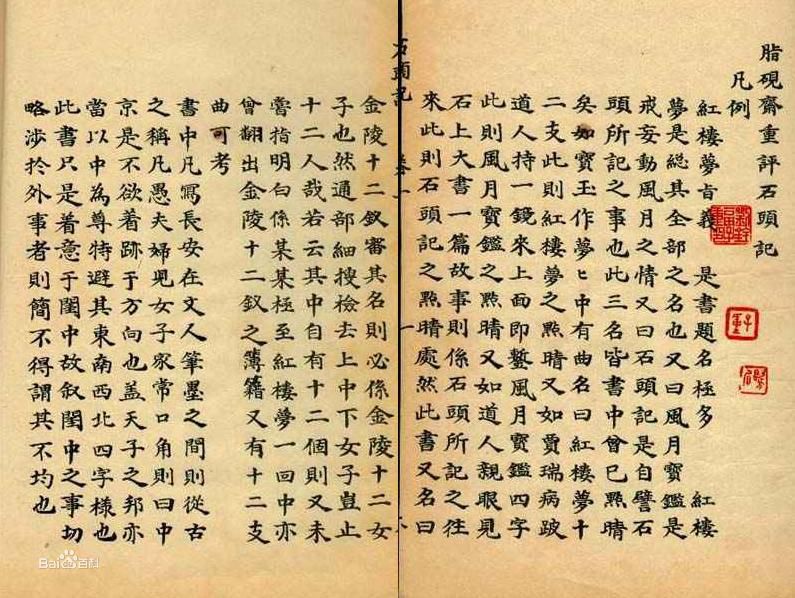 脂硯齋重評石頭記
凡例
紅樓夢旨義 是書題名極多 紅樓
夢是総其全部之名也又曰風月寶鑑是
戒妄動風月之情又曰石頭記是自譬石
頭所記之事也此三名皆書中曾已㸃晴
矣如寶玉作夢ヒ中有曲名曰紅樓夢十
二支此則紅樓夢之㸃晴又如賈瑞病跛
道人持一鏡來上面即鏨風月寶鑑四字
此則風月寶鑑之㸃晴又如道人親眼見
石上大書一篇故事則係石頭所記之往
來此則石頭記之㸃晴處然此書又名曰
石頭記 卷一 一
金陵十二釵審其名則必係金陵十二女
子也然通部細搜檢去上中下女子豈止
十二人哉若云其中自有十二個則又未
嘗指明白係某某極至紅樓夢一回中亦
曾翻出金陵十二釵之簿籍又有十二支
曲可考
書中凡寫長安在文人筆墨之間則從古
之稱凡愚夫婦兒女子家常口角則曰中
京是不欲着跡于方向也盖天子之邦亦
當以中為尊特避其東南西北四字樣也
此書只是着意于閨中故叙閨中之事切
略涉於外事者則簡不得謂其不均也
Baidu百科